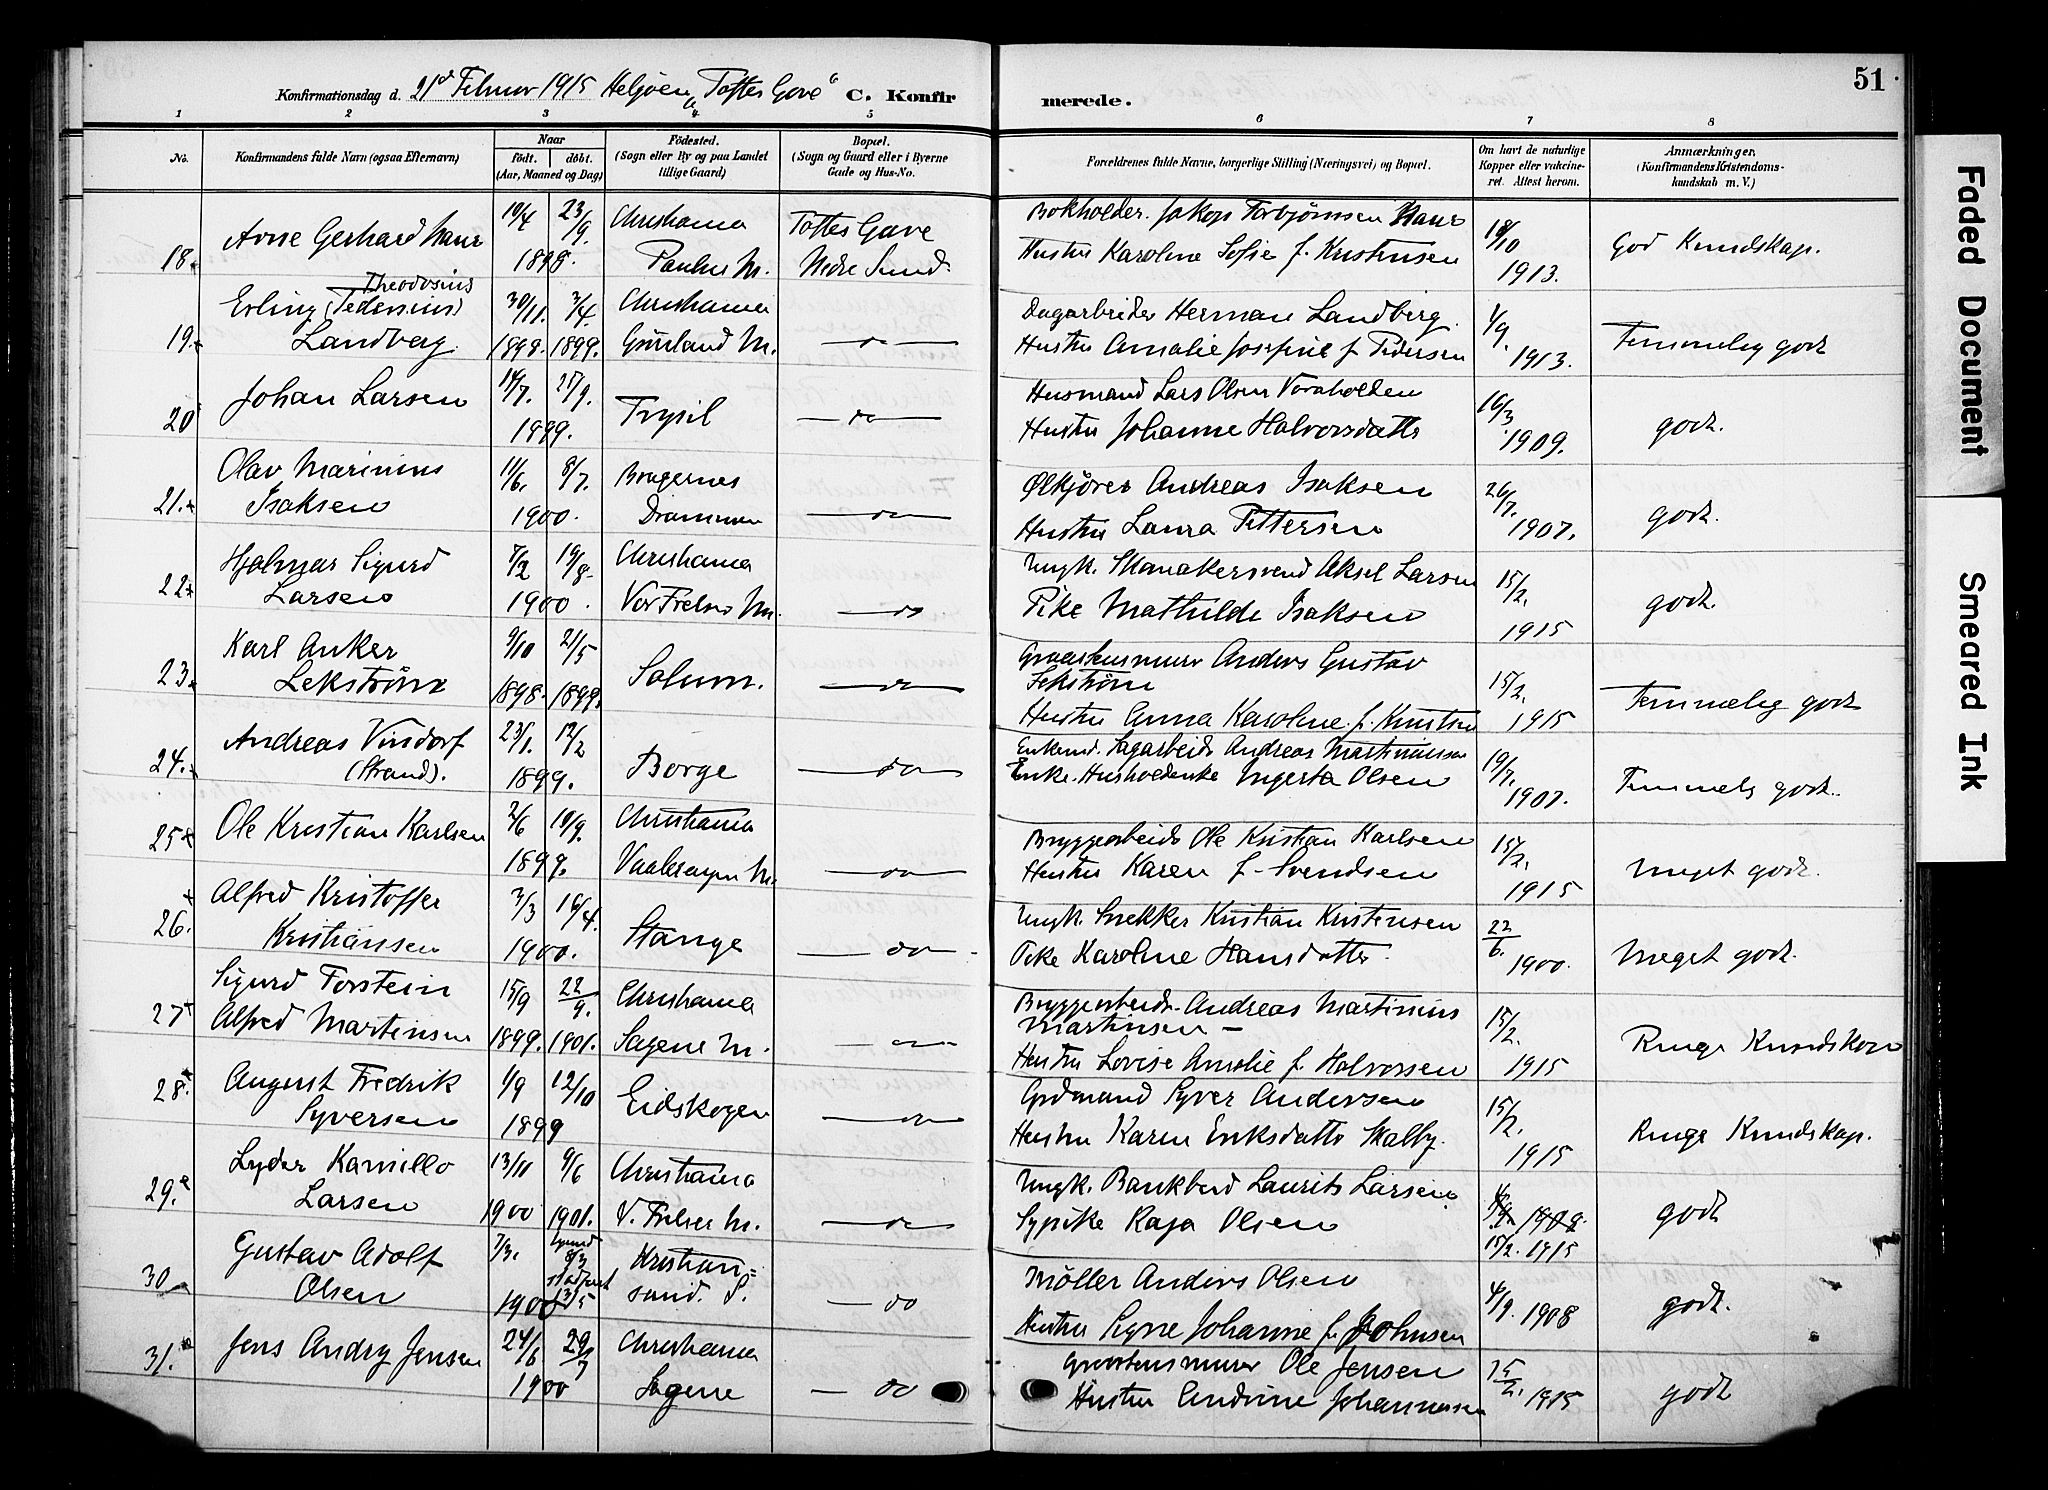 51
Konfirmationsdag d. 21de Februar 1915 Helgøen "Toftes Gave" C. Konfirmerede.
1 2 3 4 5 6 7 8
No. Konfirmandens fulde Navn (ogsaa Efternavn) Naar født. døbt. (Aar, Maaned og Dag) Fødested. (Sogn eller By og paa Landet tillige Gaard) Bopæl. (Sogn og Gaard eller i Byerne Gade og Hus-No. Forældrenes fulde Navne, borgerlige Stilling (Næringsvei) og Bopæl. Om havt de naturlige Kopper eller vakcineret. Attest herom. Anmærkninger. (Konfirmandens Kristendomskundskab m. V.)
Arne Gerhard 10/4 23/9. Christiania Toftes Gave Bokholder Jakop Torbjørnsen 18/10 God Kundskap.
18. 1898. Paulus M. Nedre Sund. Hustru Karoline Sofie f. Kristensen 1913.
Theodosius
Erling (Tedersius) 30/11. 3/4. Christiania Dagarbeider Herman Landberg. 4/9.
19. Landberg. 1898. 1899. Grønland M. — do — Hustru Amalie Josefine f. Pedersen 1913. Temmelig godt
Johan Larsen 14/7. 27/9. Husmand Lars Olsen 16/3.
20 1899. Trysil — do — Hustru Johanne Halvorsdatter 1909. godt.
Olav Marinius 11/6. 8/7. Bragernes Ølkjører Andreas Isaksen 26/7.
21. Isaksen 1900. Drammen — do — Hustru Laura Pettersen 1907. godt.
Hjalmar Sigurd 7/2 19/8. Christiania Ungk. Skomakersvend Aksel Larsen 15/2.
22 Larsen 1900. Vor Frelsers M. — do Pike Mathilde Isaksen 1915 godt.
Karl Anker 9/10 21/5 Graastensmurer Anders Gustav
23. Lekstrøm 1898. 1899. Solum. — do — Lekstrøm 15/2.
Hustru Anna Karoline f. Knutsen 1915 Temmelig godt
Andreas Vindorf 23/1. 12/2 Enkemd. Sagarbeider Andreas Martiniussen 19/7.
24. (Strand). 1899. Borge — do — Enke. Husholderske Olsen 1907. Temmelig godt.
25 Ole Kristian Karlsen 2/6 10/9. Christiania Bryggearbeider Ole Kristian Karlsen 15/2.
1899. Vaalerengen M. — do — Hustru Karen f. Svendsen 1915 meget godt.
Alfred Kristoffer 3/3 16/4. Ungk. Snekker Kristian Kristensen 22/6.
26. Kristiansen 1900. Stange — do — Pike Karoline Hansdatter 1900. meget godt.
Sigurd Torstein 15/9 22/9. Christiania Bryggearbeider Andreas Martinius
27 Alfred Martinsen 1899. 1901. Sagene M. — do — Martinsen — 15/2.
Hustru Lovise Amalie f. Halvorsen 1915 Ringe Kundskap
28. August Fredrik 1/9 12/10 Eidskogen Grdmand Syver Andersen 15/2.
Syversen 1899 — do — Hustru Karen Eriksdatter Skalby. 1915 Ringe Kundskap.
Lyder Kamillo 13/11 9/6 Christiania Ungk. Bankbud Laurits Larsen
29. Larsen 1900 1901. V. Frelser M. — do — Sypike Kaja Olsen godt
15/2. 1915
Gustav Adolf 7/3. 8/3 Kristian=
30 Olsen 1900 13/5 sund. S. — do Møller Anders Olsen 4/9. 1908 godt.
Hustru Signe Johanne f. Johnsen
31. Jens Andry Jensen 24/6 29/7 Christiania Graastensmurer Ole Jensen 15/2.
1900 Sagene — do Hustru Andrine Johannessen 1915 godt
Faded Document
Smeared Ink